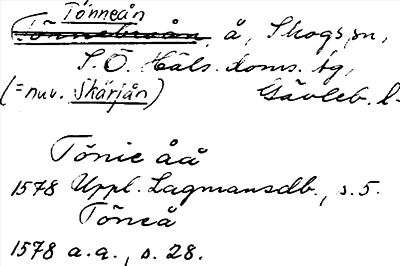 Tönneån
Tönnebroån, å, Skogs sn,
S. Ö. Häls. doms. tg,
(= nuv. Skärjån) Gävleb. l.
Tönie åå
1578 Uppl. Lagmansdb., s. 5.
Töneå
1578 a. a., s. 28.